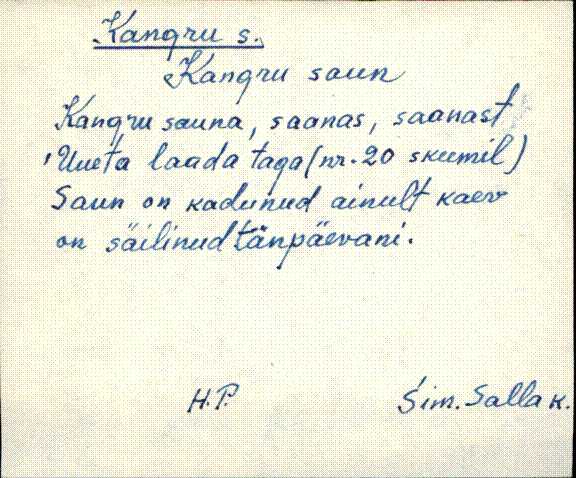 Kangru s.
Kangru saun
Kangru sauna, saanas, saanast
'Uueta laada taga (nr. 20 skeemil)
Saun on kadunud ainult kaev
on säilinud tänpäevani.
H.P. Sim. Salla k.